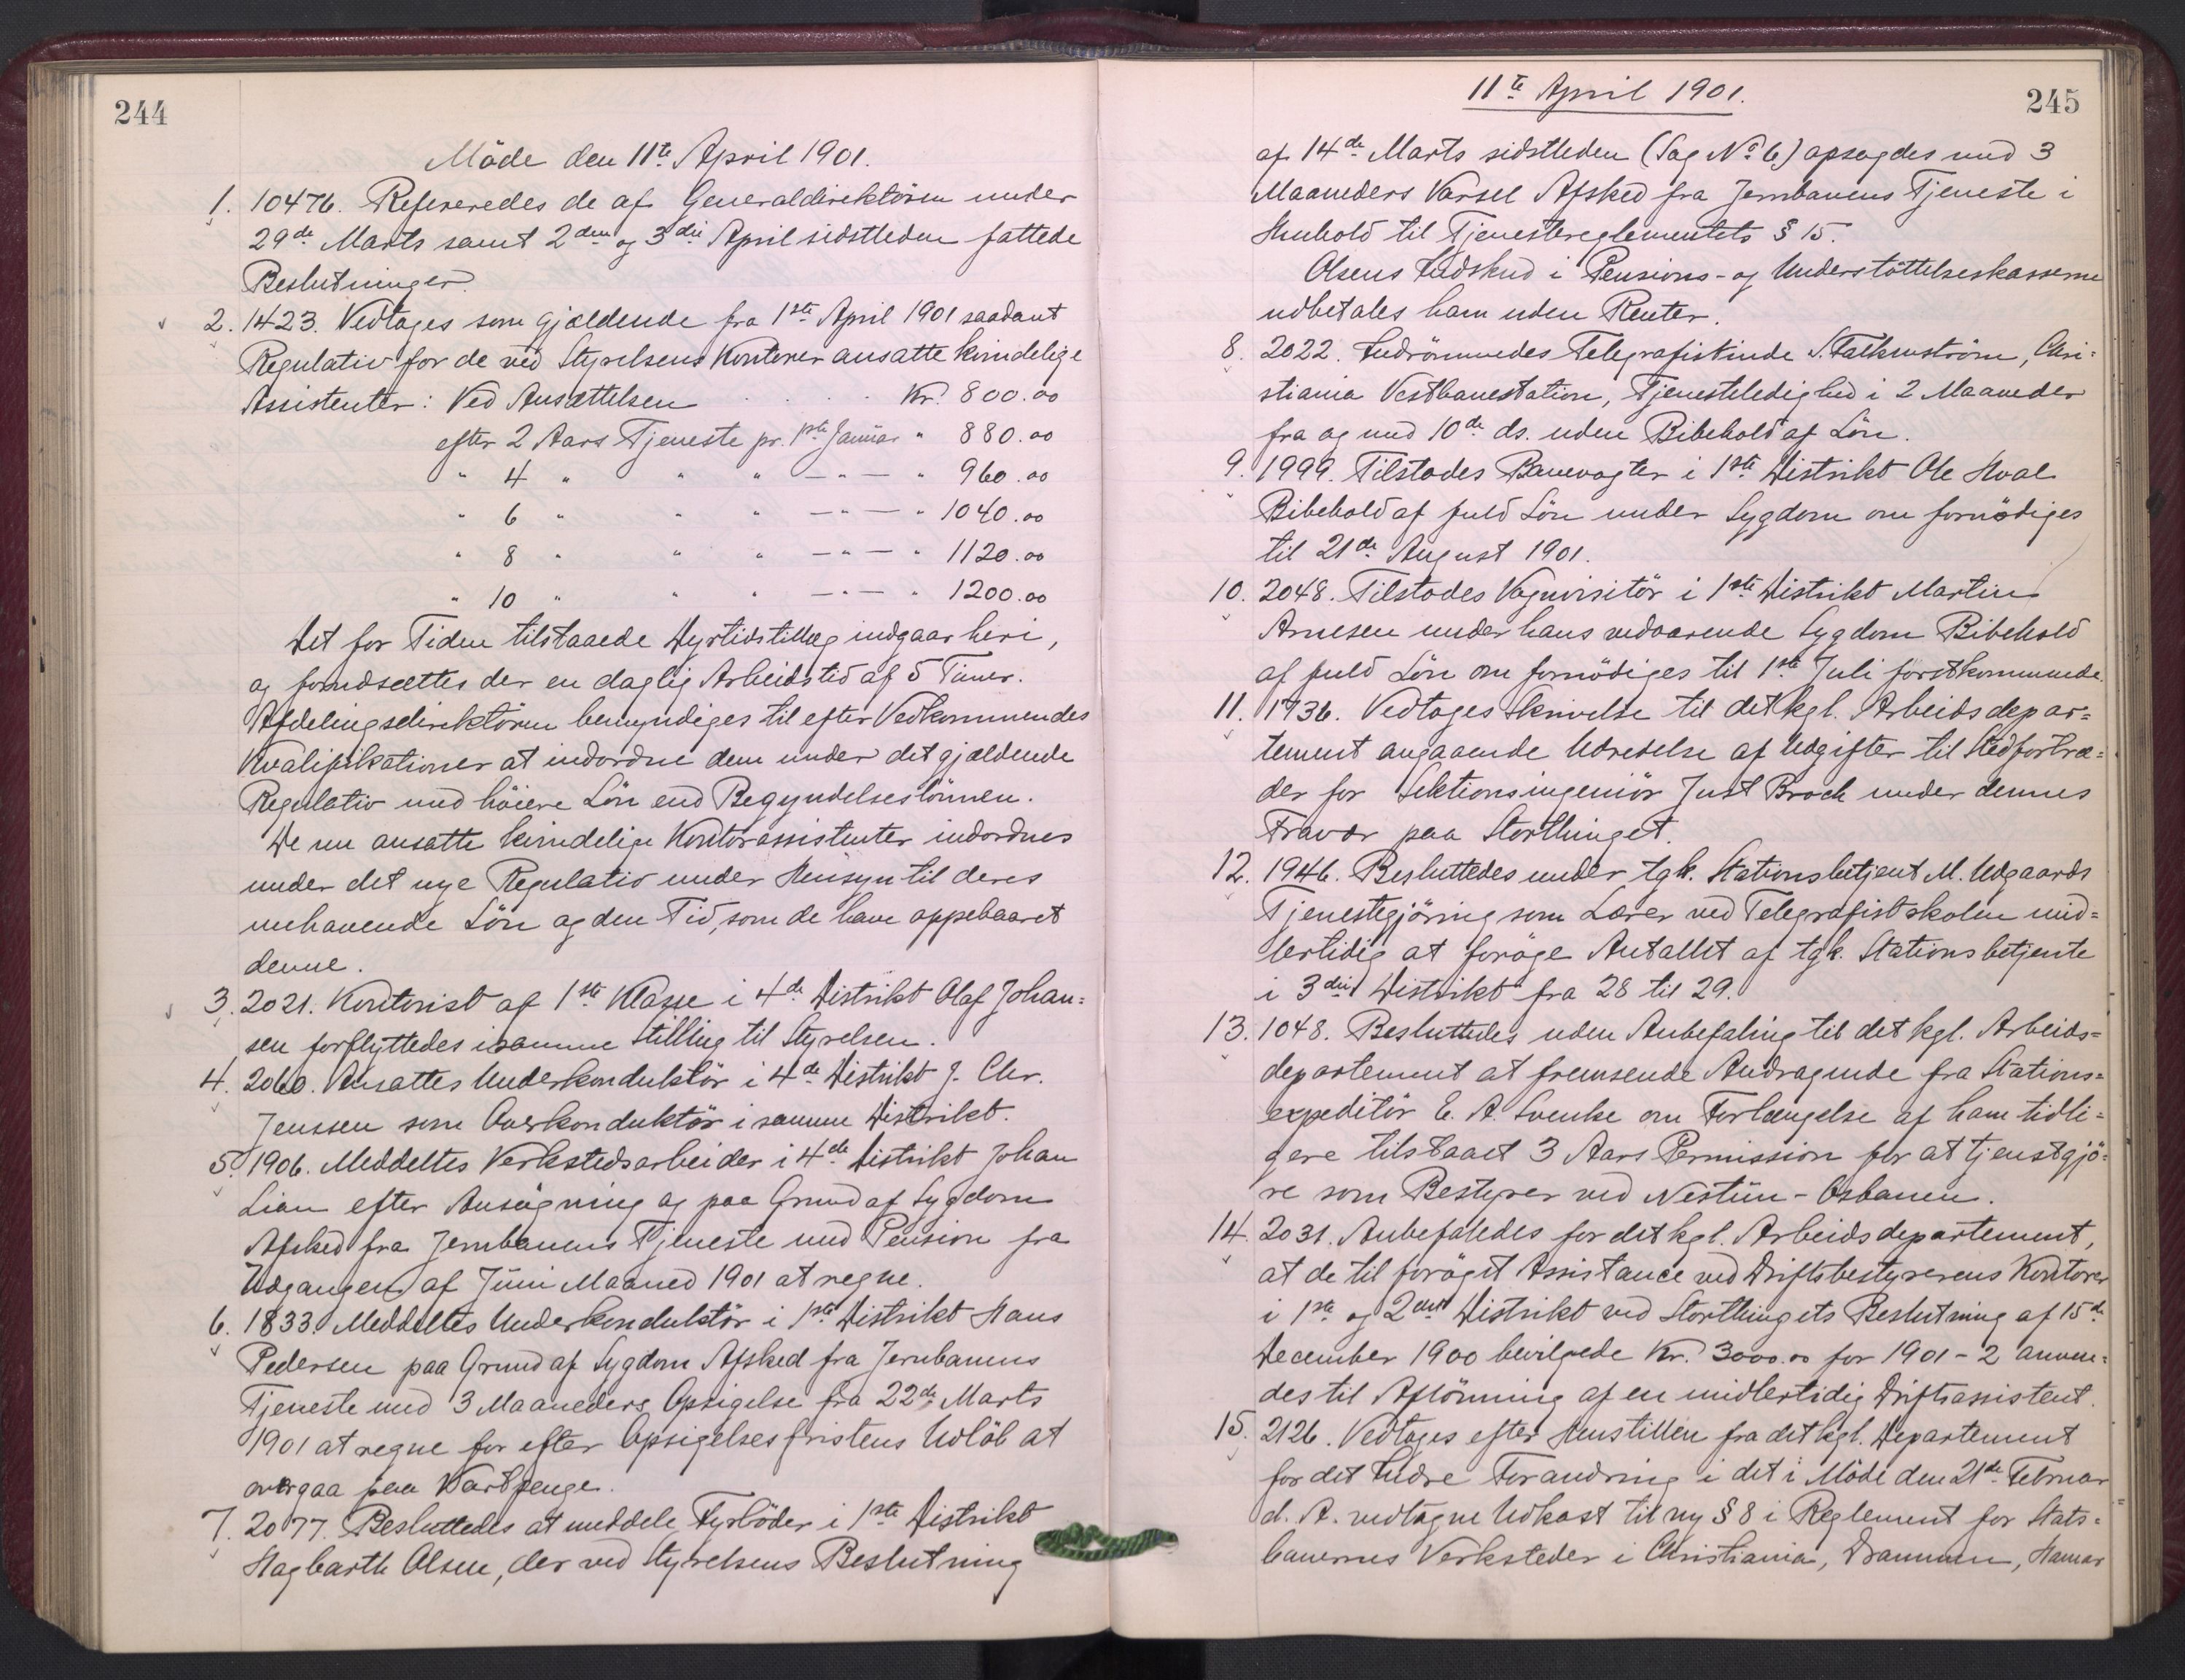 244
Möde den 11te April 1901.
1. 10476. Refereredes de af Generaldirektören under
29de Marts samt 2den og 3die April sidstleden fattede
Beslutninger.
2. 1423. Vedtoges som gjældende fra 1ste April 1901 saadant
Regulativ for de ved Styrelsens Kontorer ansatte kvindelige
Assistenter: Ved Ansættelsen . . . . Kr. 800.00
efter 2 Aars Tjeneste pr. 1ste Januar " 880.00
" 4 " " " — " — " 960.00
" 6 " " " — " — " 1040.00
" 8 " " " — " — " 1120.00
" 10 " " " — " — " 1200.00
Det for Tiden tilstaaede Dyrtidstillæg indgaar heri,
og forudsættes der en daglig Arbeidstid af 5 Timer.
Afdelingsdirektören bemyndiges til efter Vedkommendes
Kvalifikationer at indordne dem under det gjældende
Regulativ med höiere Lön end Begyndelseslönnen.
De nu ansatte kvindelige Kontorassistenter indordnes
under det nye Regulativ under Hensyn til deres
nuhavende Lön og den Tid, som de have oppebaaret
denne.
3. 2021. Kontorist af 1ste Klasse i 4de Distrikt Olaf Johan=
sen forflyttedes i samme Stilling til Styrelsen.
4. 2060. Ansattes Underkonduktör i 4de Distrikt J. Chr.
Jenssen som Overkonduktör i samme Distrikt.
5. 1906. Meddeltes Verkstedsarbeider i 4de Distrikt Johan
Lian efter Ansögning og paa Grund af Sygdom
Afsked fra Jernbanens Tjeneste med Pension fra
Udgangen af Juni Maaned 1901 at regne.
6. 1833. Meddeltes Underkonduktör i 1ste Distrikt Hans
Pedersen paa Grund af Sygdom Afsked fra Jernbanens
Tjeneste med 3 Maaneders Opsigelse fra 22de Marts
1901 at regne for efter Opsigelsesfristens Udlöb at
overgaa paa Vartpenge.
7. 2077. Besluttedes at meddele Fyrböder i 1ste Distrikt
Hagbarth Olsen, der ved Styrelsens Beslutning
11te April 1901.
245
af 14de Marts sidstleden (Sag No 6) opsagdes med 3
Maaneders Varsel Afsked fra Jernbanens Tjeneste i
Henhold til Tjenestereglementets § 15.
Olsens Indskud i Pensions- og Understöttelseskasserne
udbetales ham uden Renter.
8. 2022. Indrömmedes Telegrafistinde S. Falkenström, Chri=
stiania Vestbanestation, Tjenesteledighed i 2 Maaneder
fra og med 10de ds. uden Bibehold af Lön.
9. 1999. Tilstodes Banevogter i 1ste Distrikt Ole Hval
Bibehold af fuld Lön under Sygdom om fornödiges
til 21de August 1901.
10. 2048. Tilstodes Vognvisitör i 1ste Distrikt Martin
Arnesen under hans vedvarende Sygdom Bibehold
af fuld Lön om fornödiges til 1ste Juli förstkommende.
11. 1736. Vedtoges Skrivelse til det kgl. Arbeidsdepar=
tement angaaende Udredelse af Udgifter til Stedfortræ=
der for Sektionsingeniör Just Broch under dennes
Fravær paa Storthinget.
12. 1946. Besluttedes under tgk. Stationsbetjent M. Udgaards
Tjenestegjöring som Lærer ved Telegrafistskolen mid=
lertidig at foröge Antallet af tgk. Stationsbetjente
i 3die Distrikt fra 28 til 29.
13. 1048. Besluttedes uden Anbefaling til det kgl. Arbeids=
departement at fremsende Andragende fra Stations=
expeditör E. A. Svenke om Forlængelse af ham tidli=
gere tilstaaet 3 Aars Permission for at tjenestgjö=
re som Bestyrer ved Nestün - Osbanen.
14. 2031. Anbefaledes for det kgl. Arbeidsdepartement,
at de til foröget Assistance ved Driftsbestyrerens Kontorer
i 1ste og 2det Distrikt ved Storthingets Beslutning af 15de
December 1900 bevilgede Kr. 3000.00 for 1901 - 2 anven=
des til Aflönning af en midlertidig Driftsassistent.
15. 2126. Vedtoges efter Henstillen fra det kgl. Departement
for det Indre Forandring i det i Möde den 21de Februar
d. A. vedtagne Udkast til ny § 8 i Reglement for Stats=
banernes Verksteder i Christiania, Drammen, Hamar